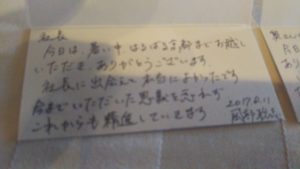 社長
今日は、暑い中 はるばる京都までお越し
いただき、ありがとうございます。
社長に出会えて本当によかったです
今までいただいた恩を忘れず
これからも精進していきます
2017.6.11